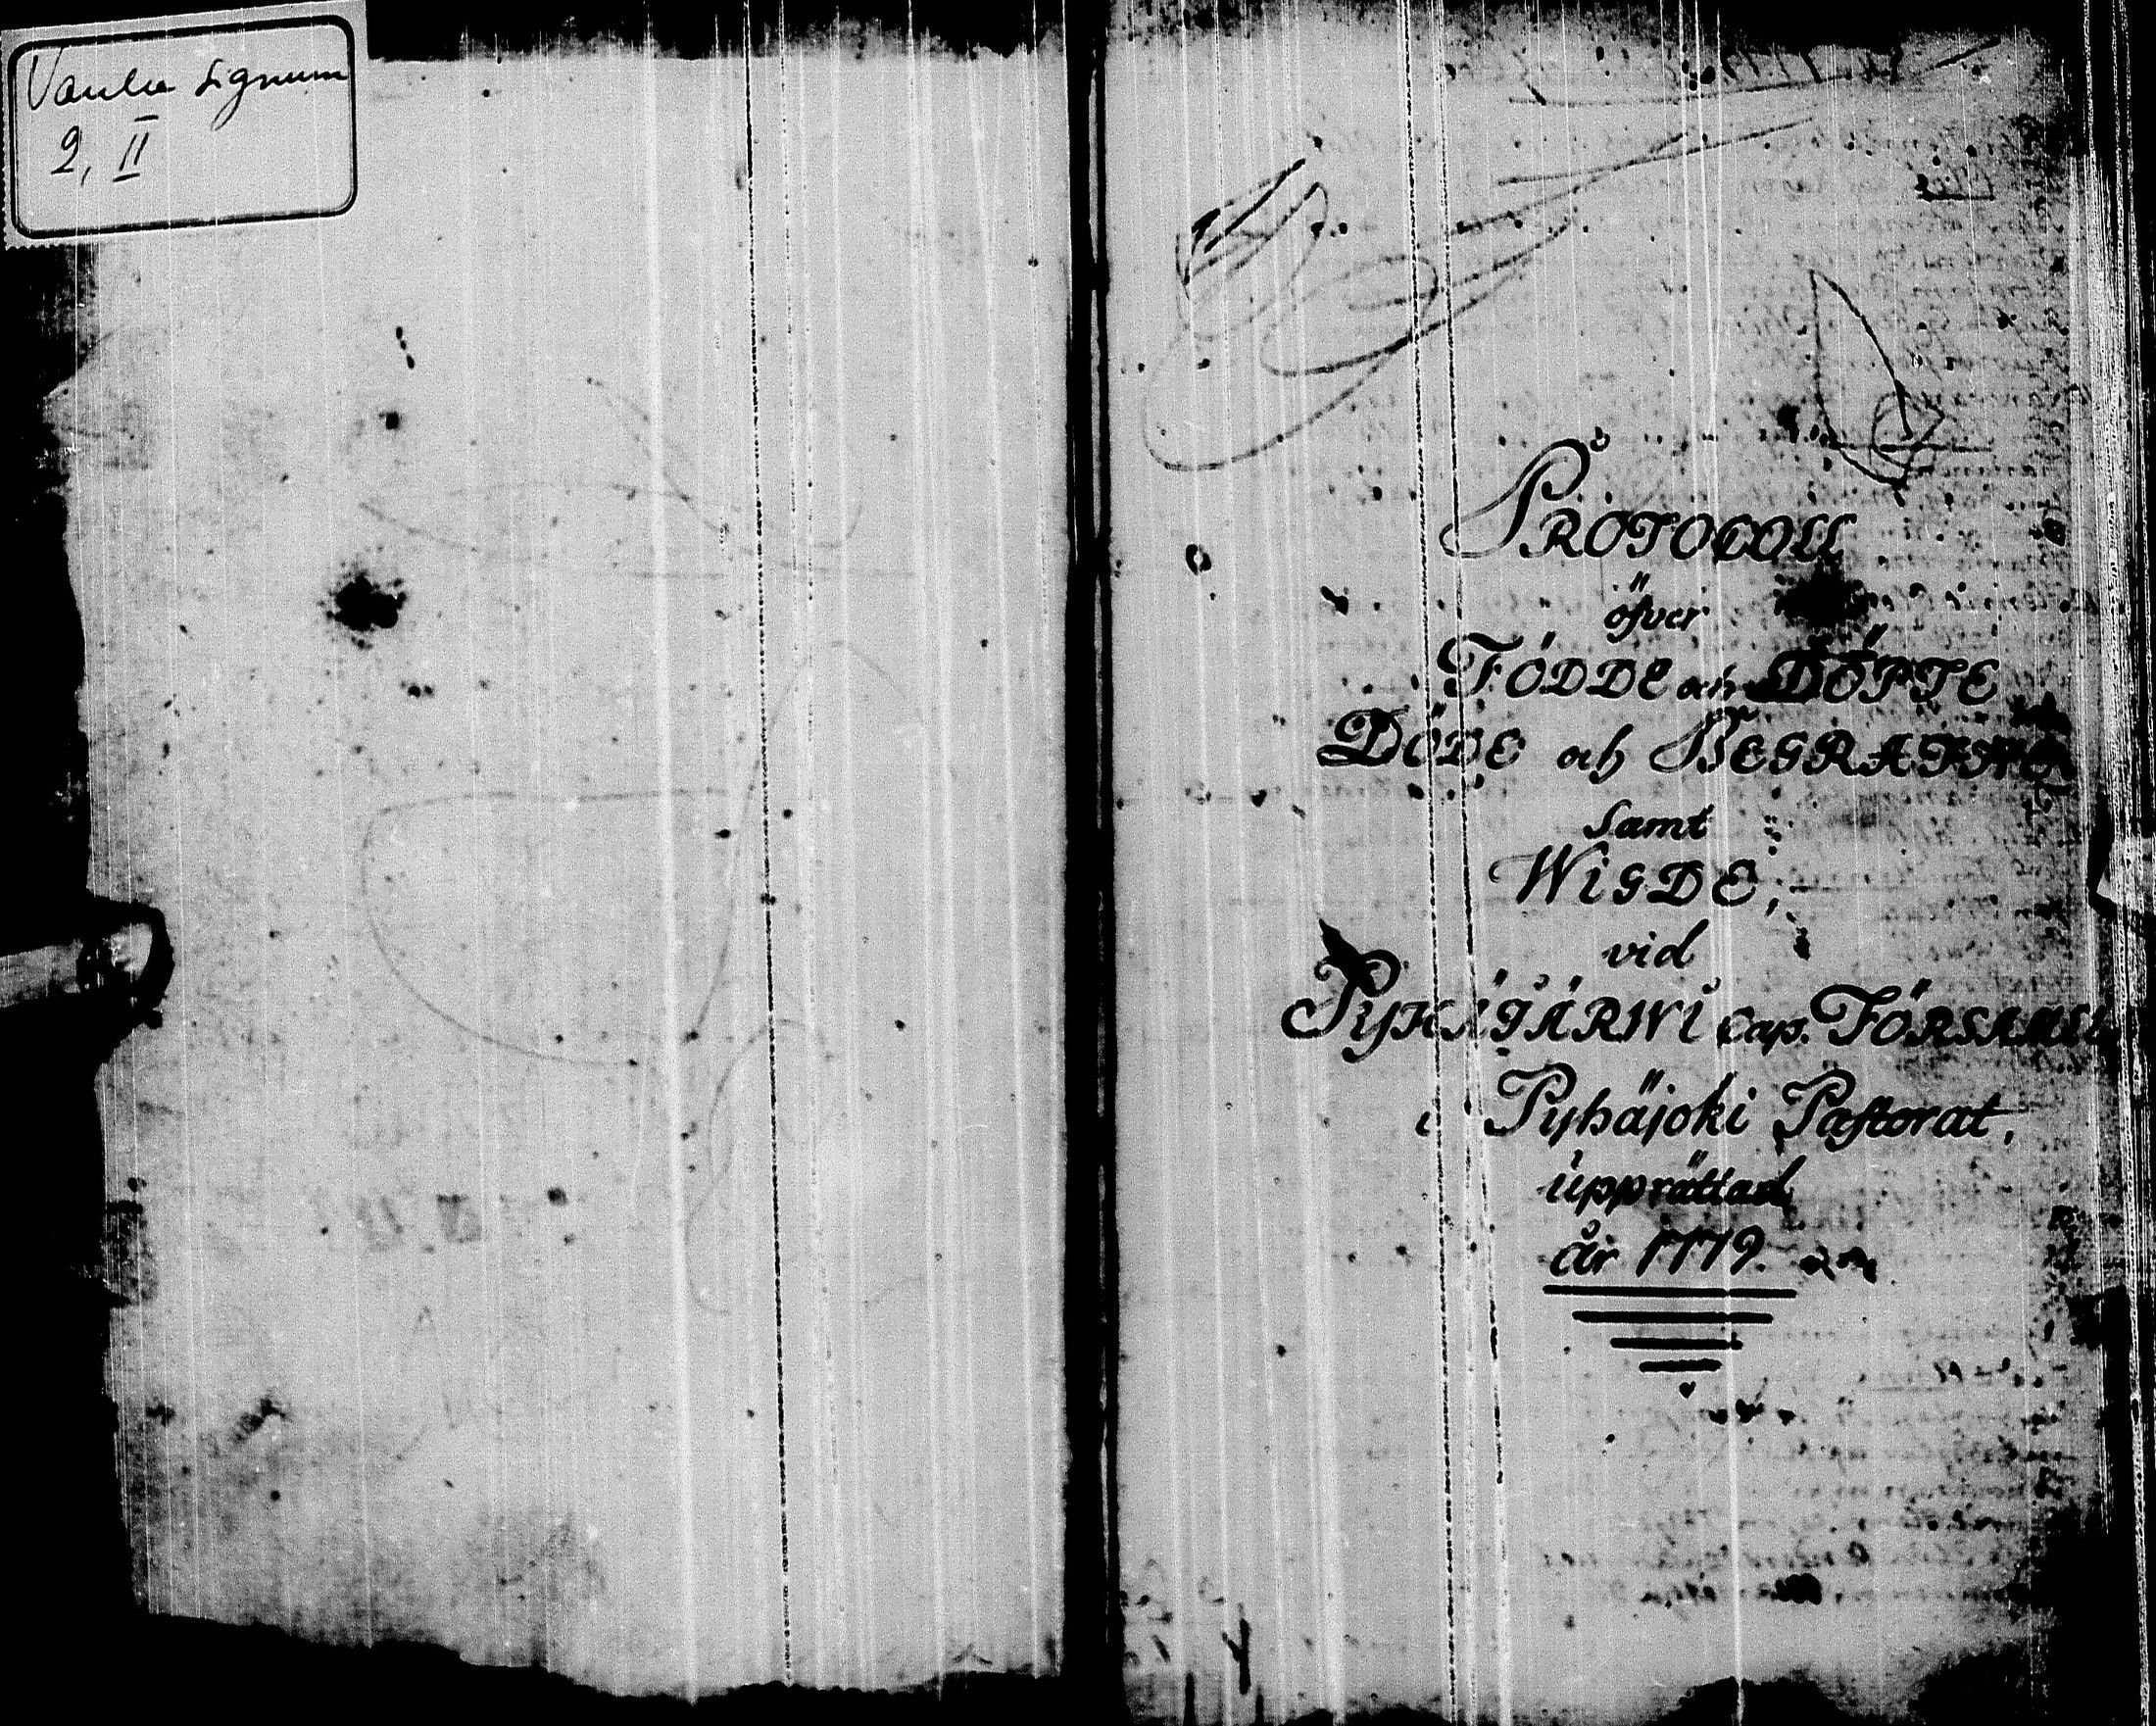 Vanha Signum
2, II
PROTOCOLL
öfver
FÖDDE och DÖPTE
DÖDE och BEGRAFNE
samt
WIGDE,
vid
PYHÄJÄRWI Cap. FÖRSAML
i Pyhäjoki Pastorat,
upprättad
år 1779.